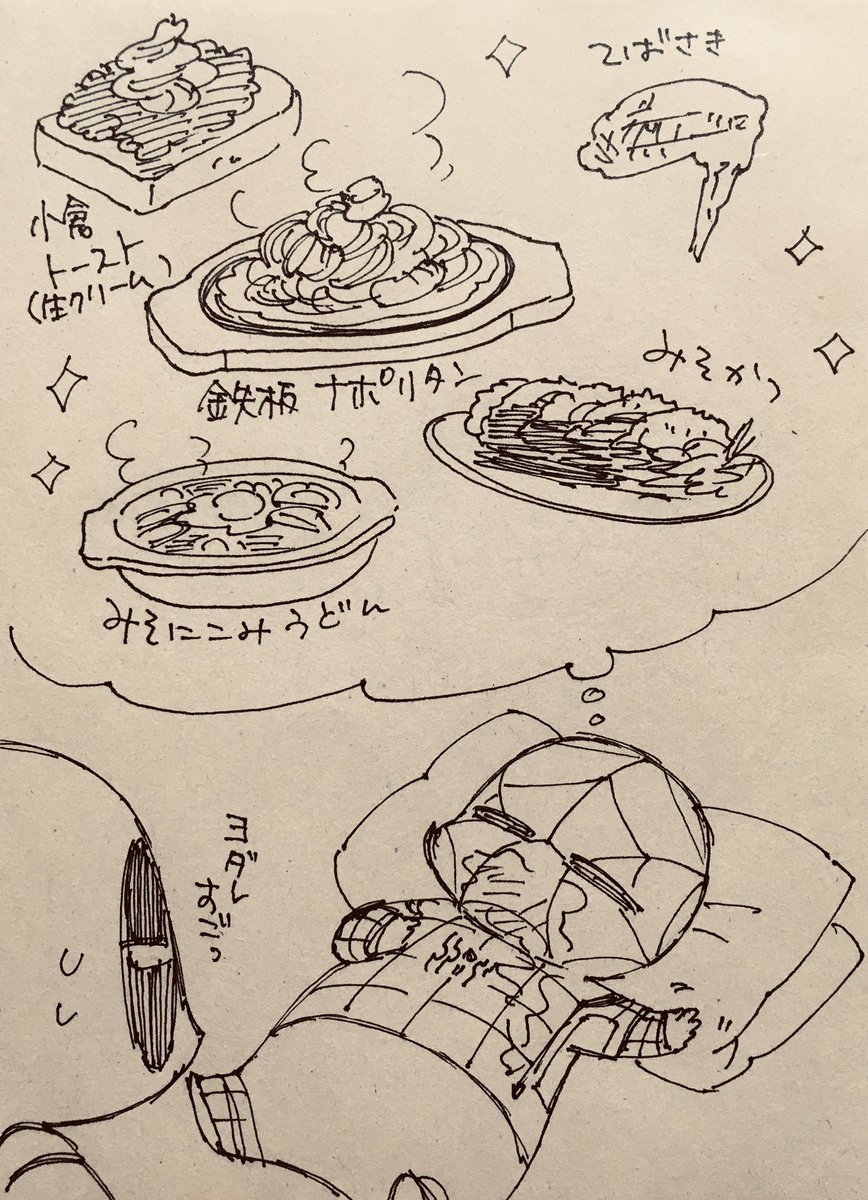 てばさき
小倉
トースト
(生クリーム)
鉄板 ナポリタン
みそかつ
みそにこみうどん
ヨダレ
おだっ